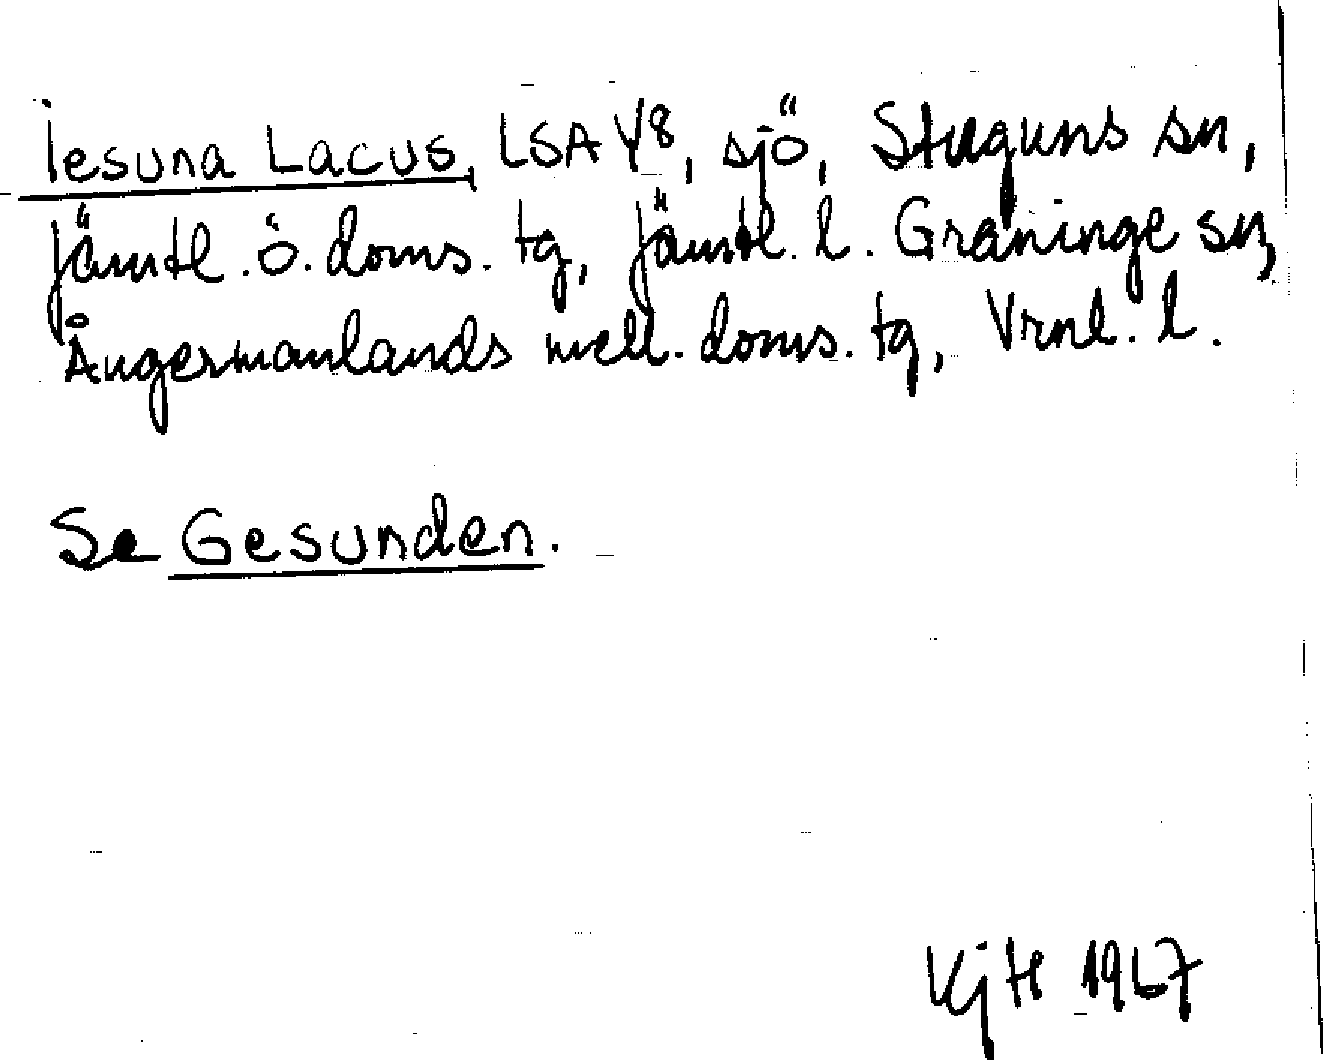 Iesuna Lacus, LSA Y8, sjö, Stuguns sn,
Jämtl. ö. doms. tg, Jämtl. l. Graninge sn,
Ångermanlands mell. doms. tg, Vrnl. l.
Se Gesunden.
VjH 1967